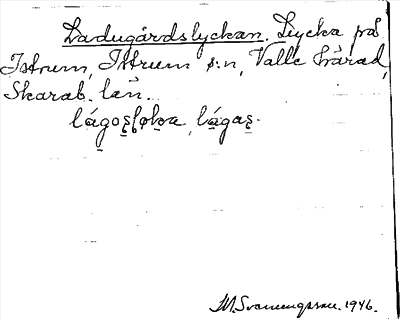 Ladugårdslyckan. Lycka på
Istrum, Istrum s:n, Valle härad,
Skarab. län.
M. Svanungsson. 1946.